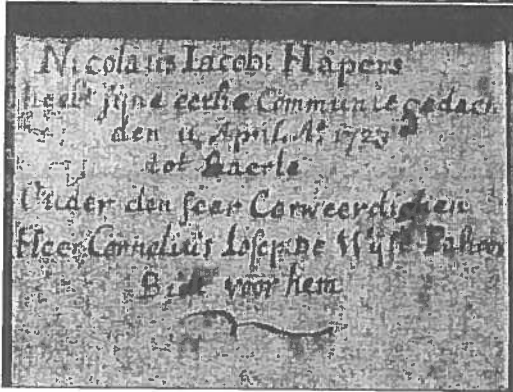 Nicolaus Iacobi Hapers
heeft sijne eerste Communie gedaen
den 11 April Ao 1723
tot Baerle
Onder den seer Eerweerdighen
Heer Cornelius Iosep De Wijse Pastoor
Bidt voor hem